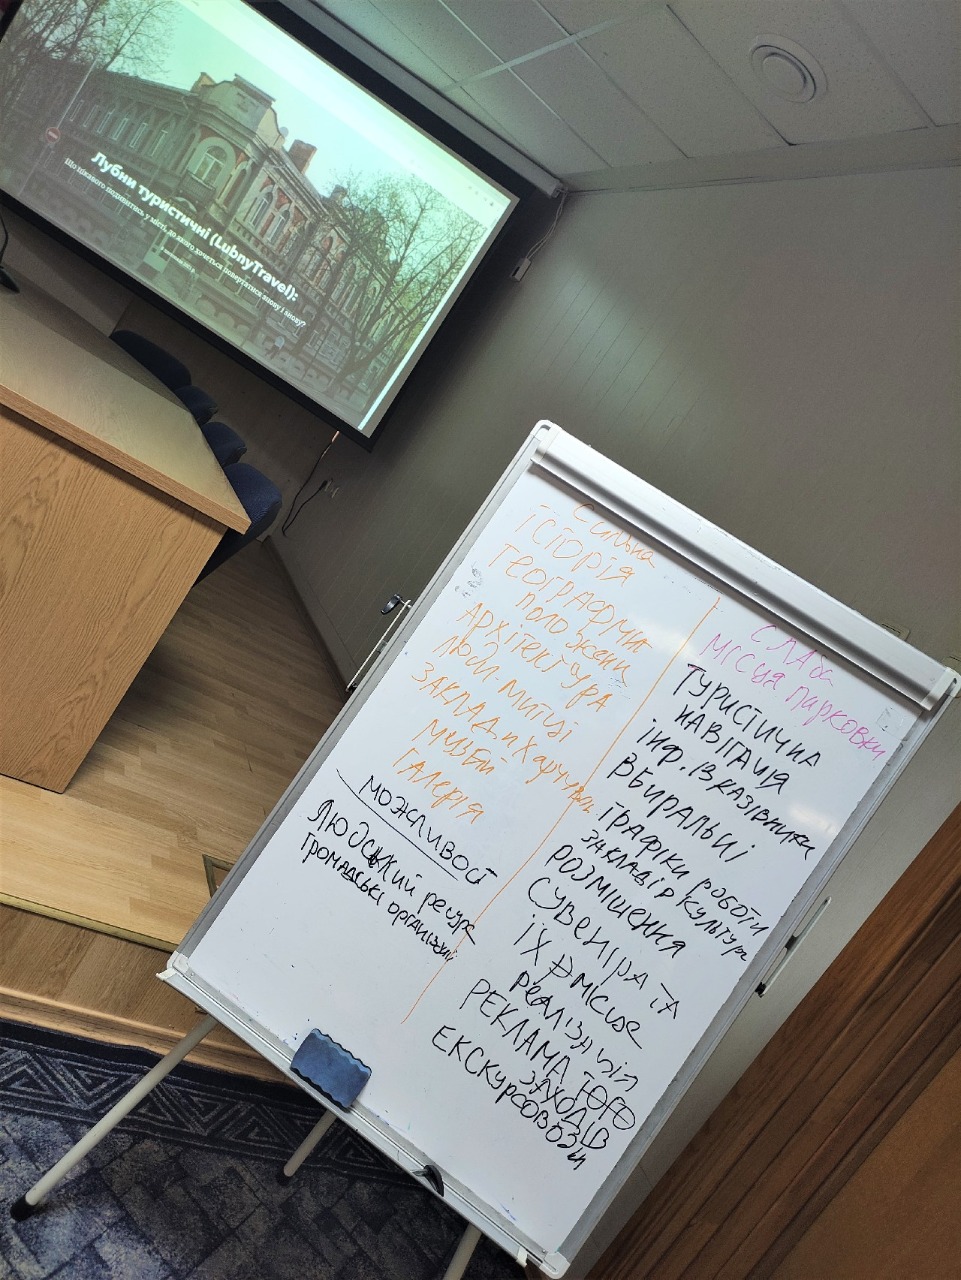 Лубни туристичні (LubnyTravel):
Що цікавого подивитись у місті, до якого хочеться повертатися знову і знову?
Сильна
ІСТОРІЯ
ГЕОГРАФІЧНЕ
ПОЛОЖЕННЯ
АРХІТЕКТУРА
ЛЮДИ-МИТЦІ
ЗАКЛАДИ Харчуван
МУЗЕЙ
ГАЛЕРІЯ
МОЖЛИВОСТ
ЛЮДСЬКИЙ ресурс
ГРОМАДСЬКІ організації
СЛАБа
МІСЦЯ ПАРКОВКИ
ТУРИСТИЧНА
НАВІГАЦІЯ
ІНФ. ІВКАЗІВНИКИ
ВБИРАЛЬНІ
ГРАФІКИ РОБОТИ
ЗАКЛАДІВ КУЛЬТУРИ
РОЗМІЩЕННЯ
СУВЕНІРИ ТА
ЇХ МІСЦЕ
РЕАЛІЗАЦІЇ
РЕКЛАМА ТОГО
ЗАХОДІВ
ЕКСКУРСОВОДИ